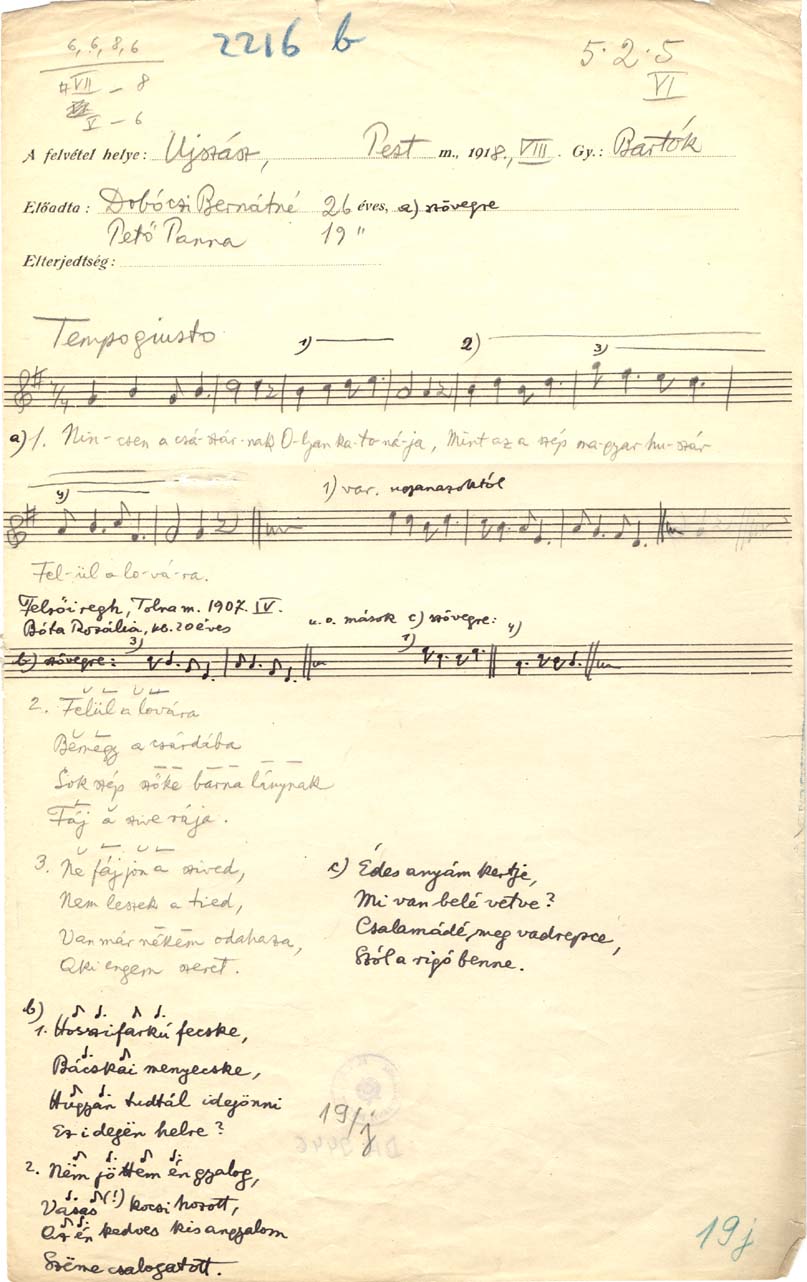 6, 6, 8, 6
2216 b
5 · 2 · 5
VII – 8
VI
V – 6
A felvétel helye: Ujszász, Pest m., 1918., VIII. Gy.: Bartók
Előadta: Dobóczi Bernátné 26 éves, a) szövegre
Pető Panna 19 "
Elterjedtség:
Tempo giusto
1) 2) 3)
7/4
a) 1. Nin-csen a csá-szár-nak O-lyan ka-to-ná-ja, Mint az a szép ma-gyar hu-szár
4) 1) var. ugyanazoktól
Fel-ül a lo-vá-ra.
Felsőiregh, Tolna m. 1907. IV.
Bóta Rozália, kb. 20 éves
u. o. mások c) szövegre:
b) szövegre: 3) 1) 4)
2. Felül a lovára
Bemegy a csárdába
Sok szép szőke barna lánynak
Fáj a szive rája.
3. Ne fájjon a szived,
Nem leszek a tied,
Van már nékëm odahaza,
Aki engem szeret.
c) Édes anyám kertje,
Mi van belé vetve?
Csalamádé, meg vadrepce,
Szól a rigó benne.
b)
1. Hosszifarkú fecske,
Bácskai menyecske,
Hugyan tudtál idejönni
Ez idegën helre?
2. Nëm jöttem én gyalog,
Vasas (!) kocsi hozott,
Az én kedves kis angyalom
Szëme csalogatott.
19/j
19j